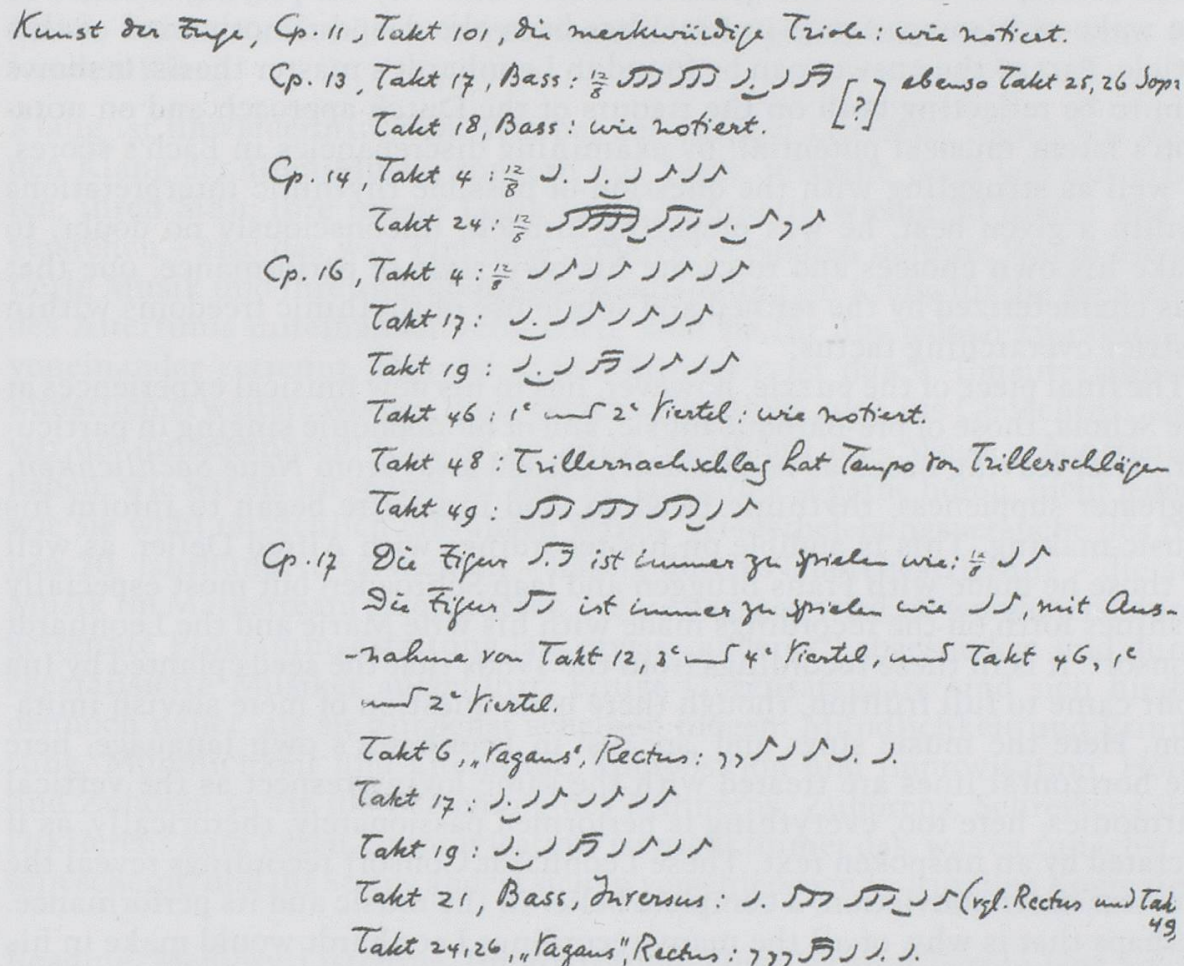 Kunst der Fuge, Cp. 11, Takt 101, die merkwürdige Triole: wie notiert.
Cp. 13, Takt 17, Bass: 12/8 [?] ebenso Takt 25, 26 Sopr
Takt 18, Bass: wie notiert.
Cp. 14, Takt 4: 12/8
Takt 24: 12/8
Cp. 16, Takt 4: 12/8
Takt 17:
Takt 19:
Takt 46: 1e und 2e Viertel: wie notiert.
Takt 48: Trillernachschlag hat Tempo von Trillerschlägen
Takt 49:
Cp. 17 Die Figur ist immer zu spielen wie: 12/8
Die Figur ist immer zu spielen wie , mit Aus-
-nahme von Takt 12, 3e und 4e Viertel, und Takt 46, 1e
und 2e Viertel.
Takt 6, „Vagans“, Rectus:
Takt 17:
Takt 19:
Takt 21, Bass, Inversus: (vgl. Rectus und Tak
49,
Takt 24, 26, „Vagans“, Rectus: